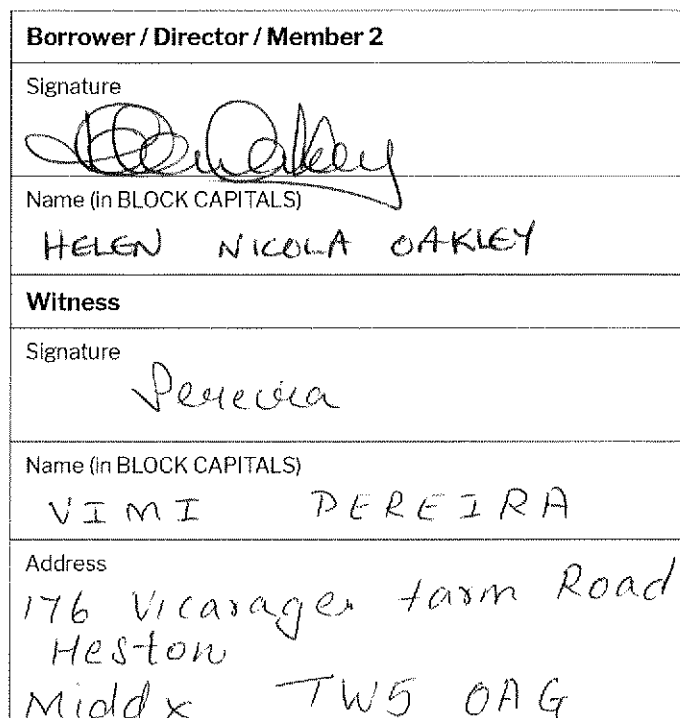 Borrower / Director / Member 2
Signature
Name (in BLOCK CAPITALS)
HELEN NICOLA OAKLEY
Witness
Signature
Pereira
Name (in BLOCK CAPITALS)
VIMI PEREIRA
Address
176 Vicarage Farm Road
Heston
Middx TW5 0AG